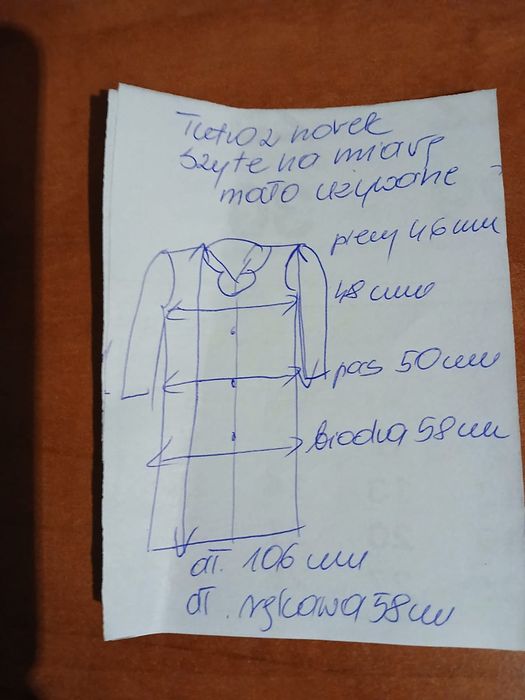 Futro z norek
szyte na miarę
mało używane
plecy 46 cm
48 cm
pas 50 cm
biodra 58 cm
dł. 106 cm
dł. rękawa 58 cm